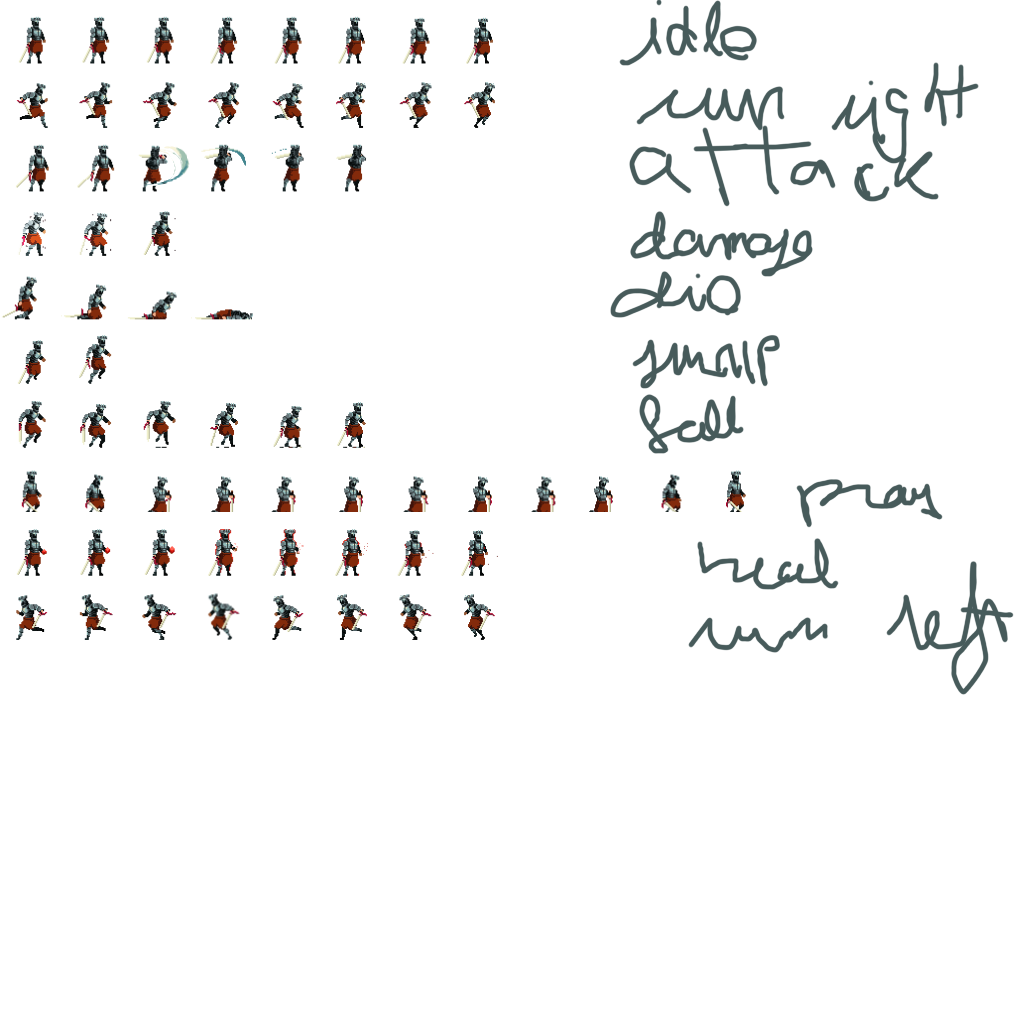 idle
run right
attack
damage
die
jump
fall
pray
heal
run left